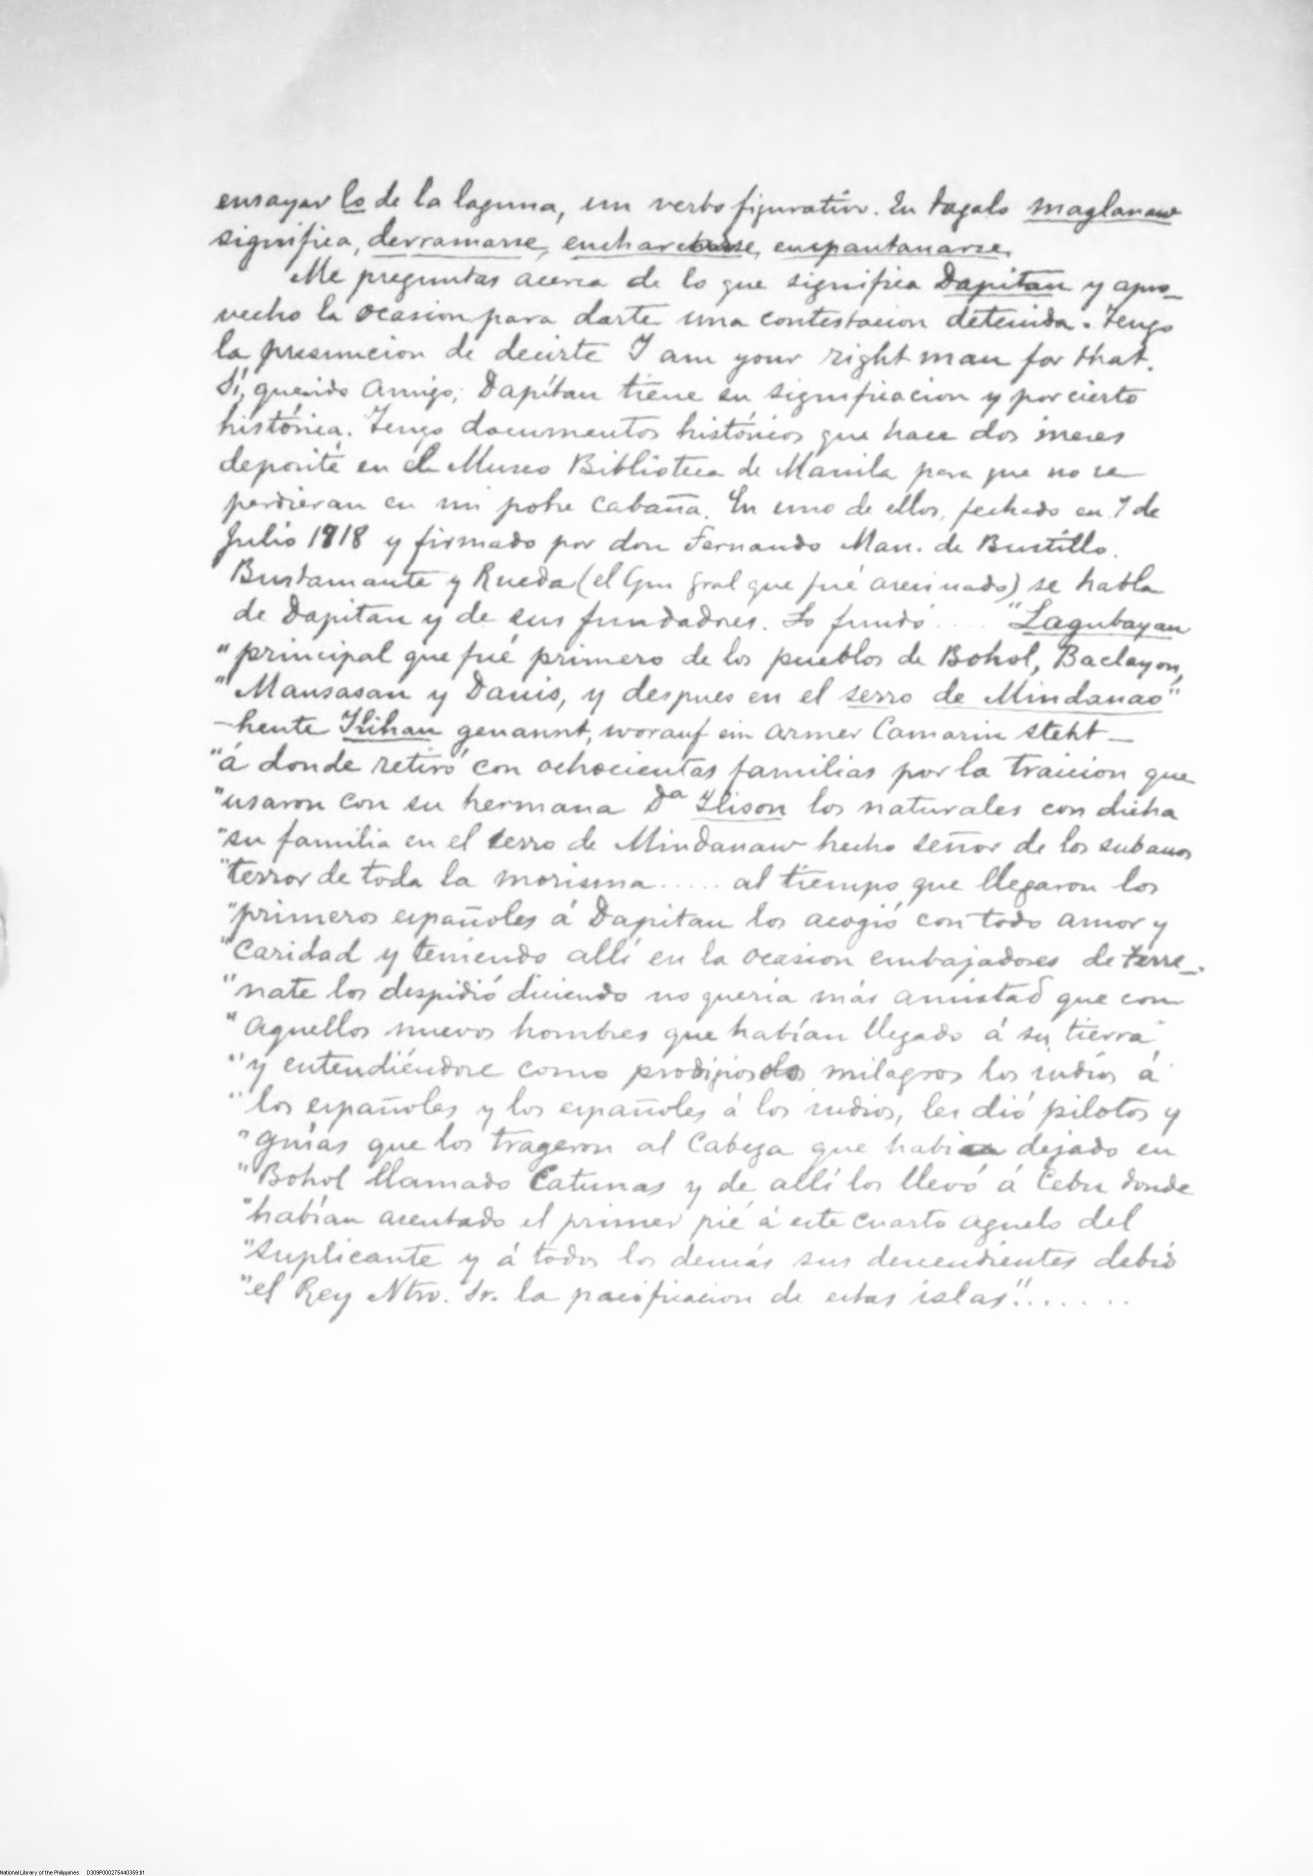 ensayar lo de la laguna, un verbo figurativo. En tagalo maglanaw
significa, derramarse, encharcarse, empantanarse.
Me preguntas acerca de lo que significa Dapitan y apro-
vecho la ocasion para darte una contestacion detenida. Tengo
la presuncion de decirte I am your right man for that.
Sí, querido Amigo; Dapitan tiene su significacion y por cierto
histórica. Tengo documentos históricos que hace dos meses
deposité en el Museo Biblioteca de Manila para que no se
perdieran en mi pobre cabaña. En uno de ellos, fechado en 7 de
Julio 1718 y firmado por don Fernando Man. de Bustillo.
Bustamante y Rueda (el Gm gral que fué asesinado) se habla
de Dapitan y de sus fundadores. Lo fundó .... "Lagubayan
"principal que fué primero de los pueblos de Bohol, Baclayon,
"Mansasan y Dauis, y despues en el serro de Mindanao"
—heute Ilihan genannt, worauf ein armer Camarin steht—
"á donde retiró con ochocientas familias por la traicion que
"usaron con su hermana Dª Ilison los naturales con dicha
"su familia en el serro de Mindanaw hecho señor de los subanos
"terror de toda la morisma ..... al tiempo que llegaron los
"primeros españoles á Dapitan los acogió con todo amor y
"caridad y teniendo allí en la ocasion embajadores de terre-
"nate los despidió diciendo no queria más amistad que con
"aquellos nuevos hombres que habían llegado á su tierra
"y entendiéndose como prodigiosos milagros los indios á
"los españoles y los españoles á los indios, les dió pilotos y
"guías que los trageron al Cabeza que había dejado en
"Bohol llamado Catunas y de allí los llevó á Cebu donde
"habían asentado el primer pié á este cuarto aguelo del
"suplicante y á todos los demás sus descendientes debió
"el Rey Ntro. Sr. la pacificacion de estas islas".......
National Library of the Philippines